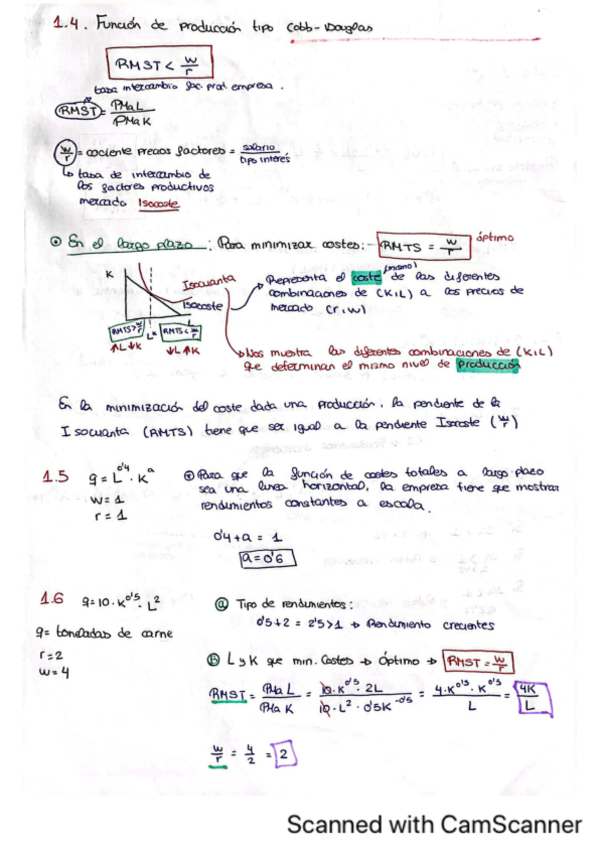 1.4. Función de producción tipo Cobb-Douglas
RMST < w/r
tasa intercambio fac. prod empresa.
RMST = PMaL/PMaK
w/r = cociente precios factores = salario/tipo interés
↳ tasa de intercambio de
los factores productivos
mercado Isocoste
⊙ En el largo plazo: Para minimizar costes: - RMTS = w/r óptimo
K
Isocuanta
Isocoste
L
L*
RMTS > w/r
RMTS < w/r
↑L↓K
↓L↑K
(mismo)
Representa el coste de las diferentes
combinaciones de (K,L) a los precios de
mercado (r,w)
Nos muestra las diferentes combinaciones de (K,L)
que determinan el mismo nivel de producción
En la minimización del coste dada una producción, la pendiente de la
Isocuanta (RMTS) tiene que ser igual a la pendiente Isocoste (w/r)
1.5 q = L^0'4 · K^a
w = 1
r = 1
Para que la función de costes totales a largo plazo
sea una linea horizontal, la empresa tiene que mostrar
rendimientos constantes a escala.
0'4 + a = 1
a = 0'6
1.6 q = 10 · K^0'5 · L^2
q = toneladas de carne
r = 2
w = 4
a Tipo de rendimientos:
0'5 + 2 = 2'5 > 1 → Rendimiento crecientes
b L y K que min. Costes → Óptimo → RMST = w/r
RMST = PMa L/PMa K = 10 · K^0'5 · 2L/10 · L^2 · 0'5K^-0'5 = 4 · K^0'5 · K^0'5/L = 4K/L
w/r = 4/2 = 2
Scanned with CamScanner